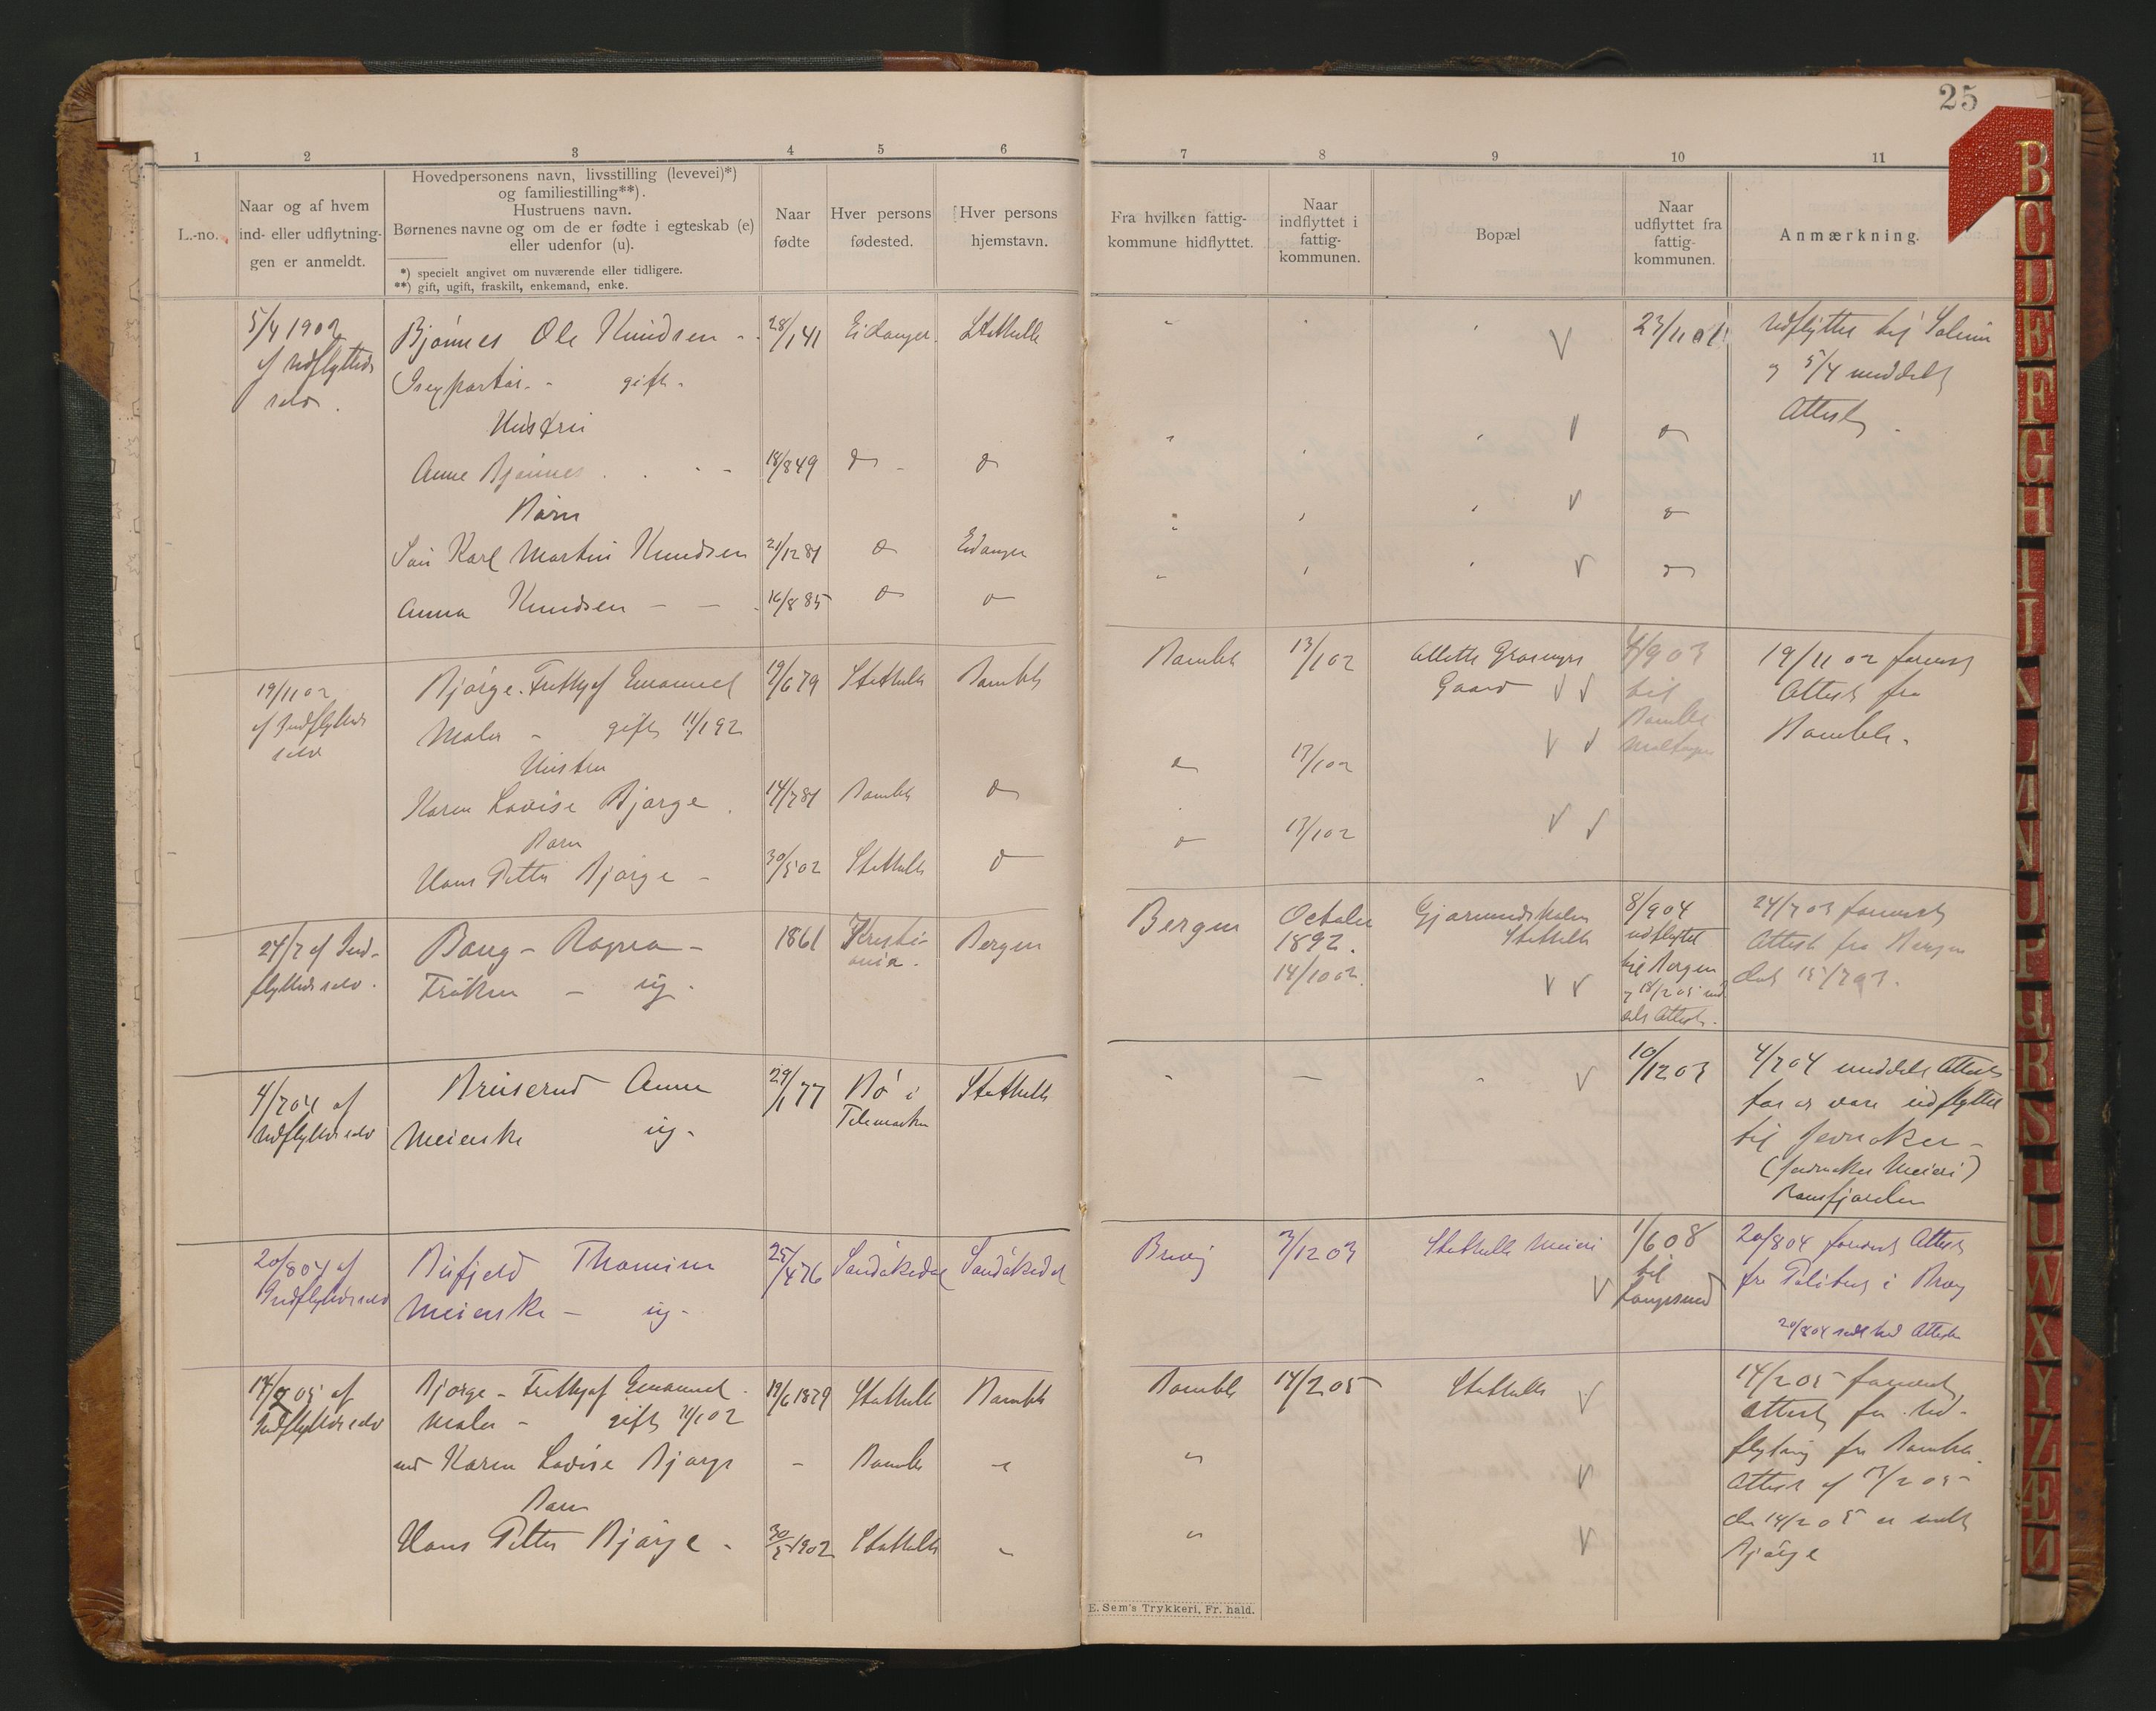 25
1 2 3 4 5 6 7 8 9 10 11
L.-no.
Naar og af hvem
ind- eller udflytnin-
gen er anmeldt.
Hovedpersonens navn, livsstilling (levevei)*)
og familiestilling**).
Hustruens navn.
Børnenes navne og om de er fødte i egteskab (e)
eller udenfor (u).
*) specielt angivet om nuværende eller tidligere.
**) gift, ugift, fraskilt, enkemand, enke.
Naar
fødte
Hver persons
fødested.
Hver persons
hjemstavn.
Fra hvilken fattig-
kommune hidflyttet.
Naar
indflyttet i
fattig-
kommunen.
Bopæl
Naar
udflyttet fra
fattig-
kommunen.
Anmærkning.
5/4 1902
af Udflytteds
selv.
Bjönnes Ole Knudsen 28/1 41 Eidanger Stathelle 23/11 01 Udflyttet til Solum
gift. og 5/4 meddelt
Attest.
Hustru
Anne Bjönnes 18/8 49 do do do
Barn
Karl Martin Knudsen 21/12 81 do Eidanger do
Anna Knudsen 16/8 85 do do do
19/11 02
af Indflytteds
selv
Bjørge Frithjof Emanuel 19/6 79 Stathelle Bamble Bamble 13/1 02 4/9 03 19/11 02 forevist
Gaard til Attest fra
Maler - gift 11/1 92 Bamble Bamble.
Hustru
Karen Lovise Bjørge 14/7 81 Bamble do do 13/1 02
Barn
Hans Petter Bjørge - 30/5 02 Stathelle do do 13/1 02
24/7 af Ind-
flytteds selv.
Bang - Ragna - 1861 Kristi-
ania. Bergen Bergen October
1892.
14/10 02.
Stathelle
8/9 04
udflyttet
til Bergen
og 18/2 05 med-
delt Attest.
24/7 03 forevist
Attest fra Bergen
dat 15/7 03.
Frøken - ug.
4/7 04 af
Udflytteds selv
Bruserud Anne 29/1 77 Bø i
Telemarken Stathelle 10/12 03 4/7 04 meddelt Attest
Meierske ug. for at være udflyttet
til Jevnaker -
(Jevnaker Meieri)
20/8 04 af
Indflytteds selv
Thomine 25/4 76 Sandøkedal Sandøkedal Brevig 3/12 03 Stathelle Meieri 1/6 08
til
Langesund
20/8 04 forevist Attest
fra Politiet i Brevig
20/8 04 Attesten
Meierske - ug.
14/2 05 af
Indflytteds selv
Bjørge - Frithjof Emanuel 19/6 1879 Stathelle Bamble Bamble 14/2 05 Stathelle 14/2 05 forevist
Maler - gift 11/1 02 Attest for Ud-
med Karen Lovise Bjørge - Bamble " " flytning fra Bamble.
Attest af 13/2 05
Barn
Hans Petter Bjørge - 30/5 1902 Stathelle " " den 14/2 05 er meldt
Bjørge
E. Sem's Trykkeri, Fr. hald.
B
C
D
E
F
G
H
I
J
K
L
M
N
O
P
Q
R
S
T
U
W
X
Y
Z
Æ
Ø